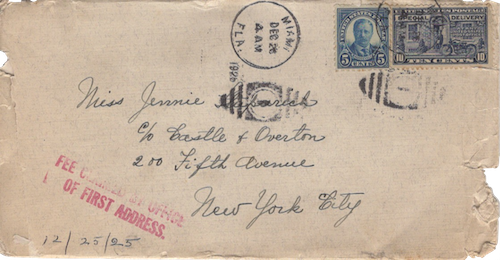 MIAMI
DEC 26
4 AM
1925
FLA.
UNITED STATES POSTAGE
5 CENTS 5
UNITED STATES POSTAGE
SPECIAL DELIVERY
10 TEN CENTS 10
Miss Jennie
c/o Castle & Overton
200 Fifth Avenue
New York City
FEE CLAIMED BY OFFICE
OF FIRST ADDRESS.
12/25/25